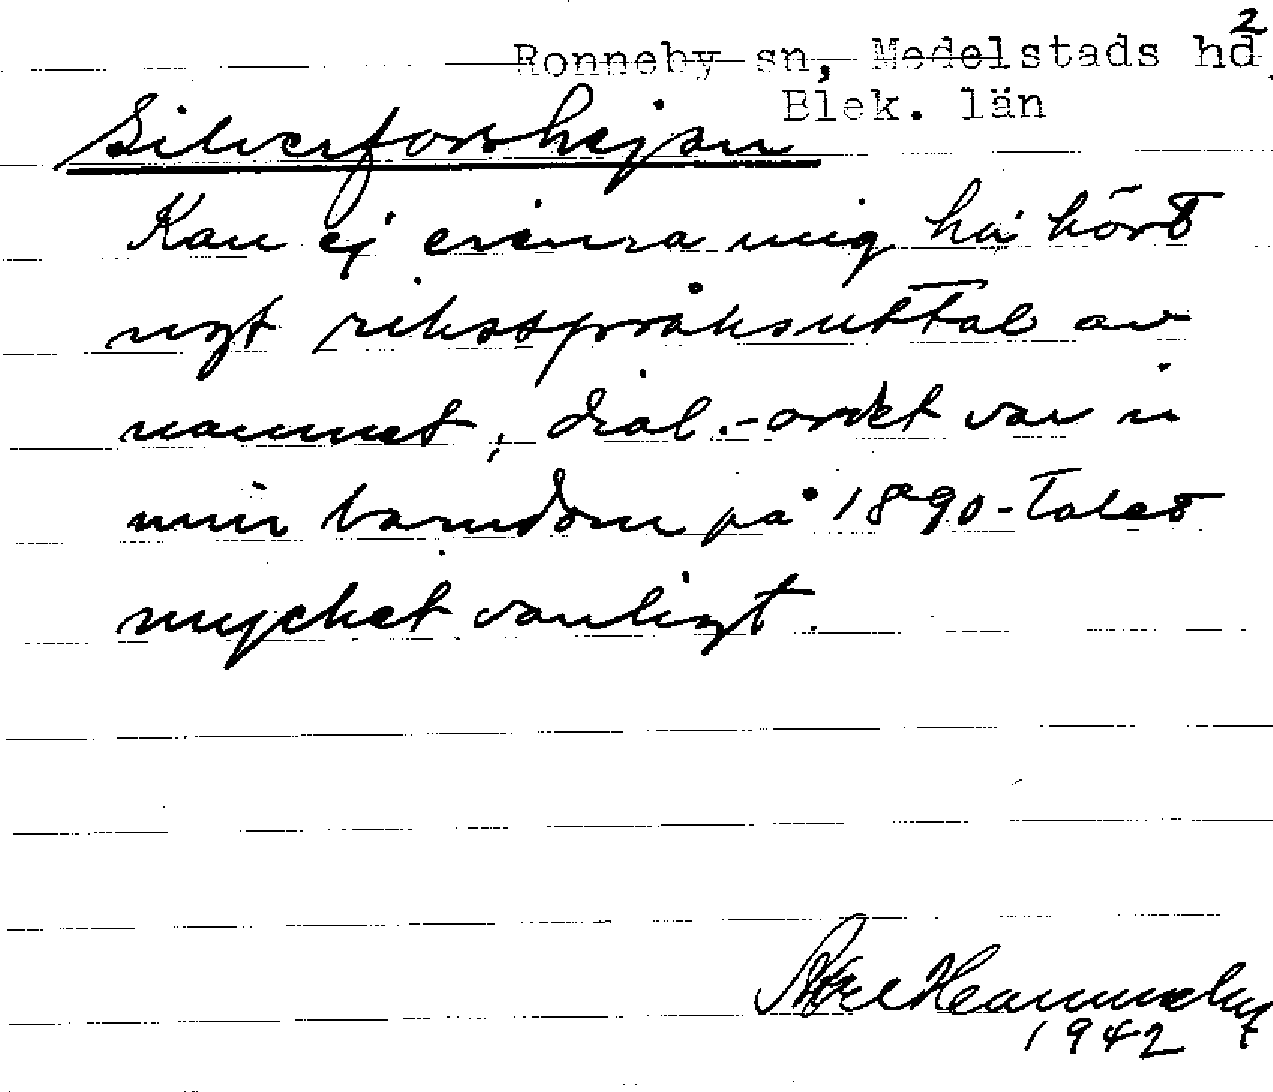 2
Ronneby sn, Medelstads hd
Blek. län
Silverforshejan
Kan ej erinra mig ha hört
ngt riksspråksuttal av
namnet, dial.-ordet var i
min barndom på 1890-talet
mycket vanligt.
1942